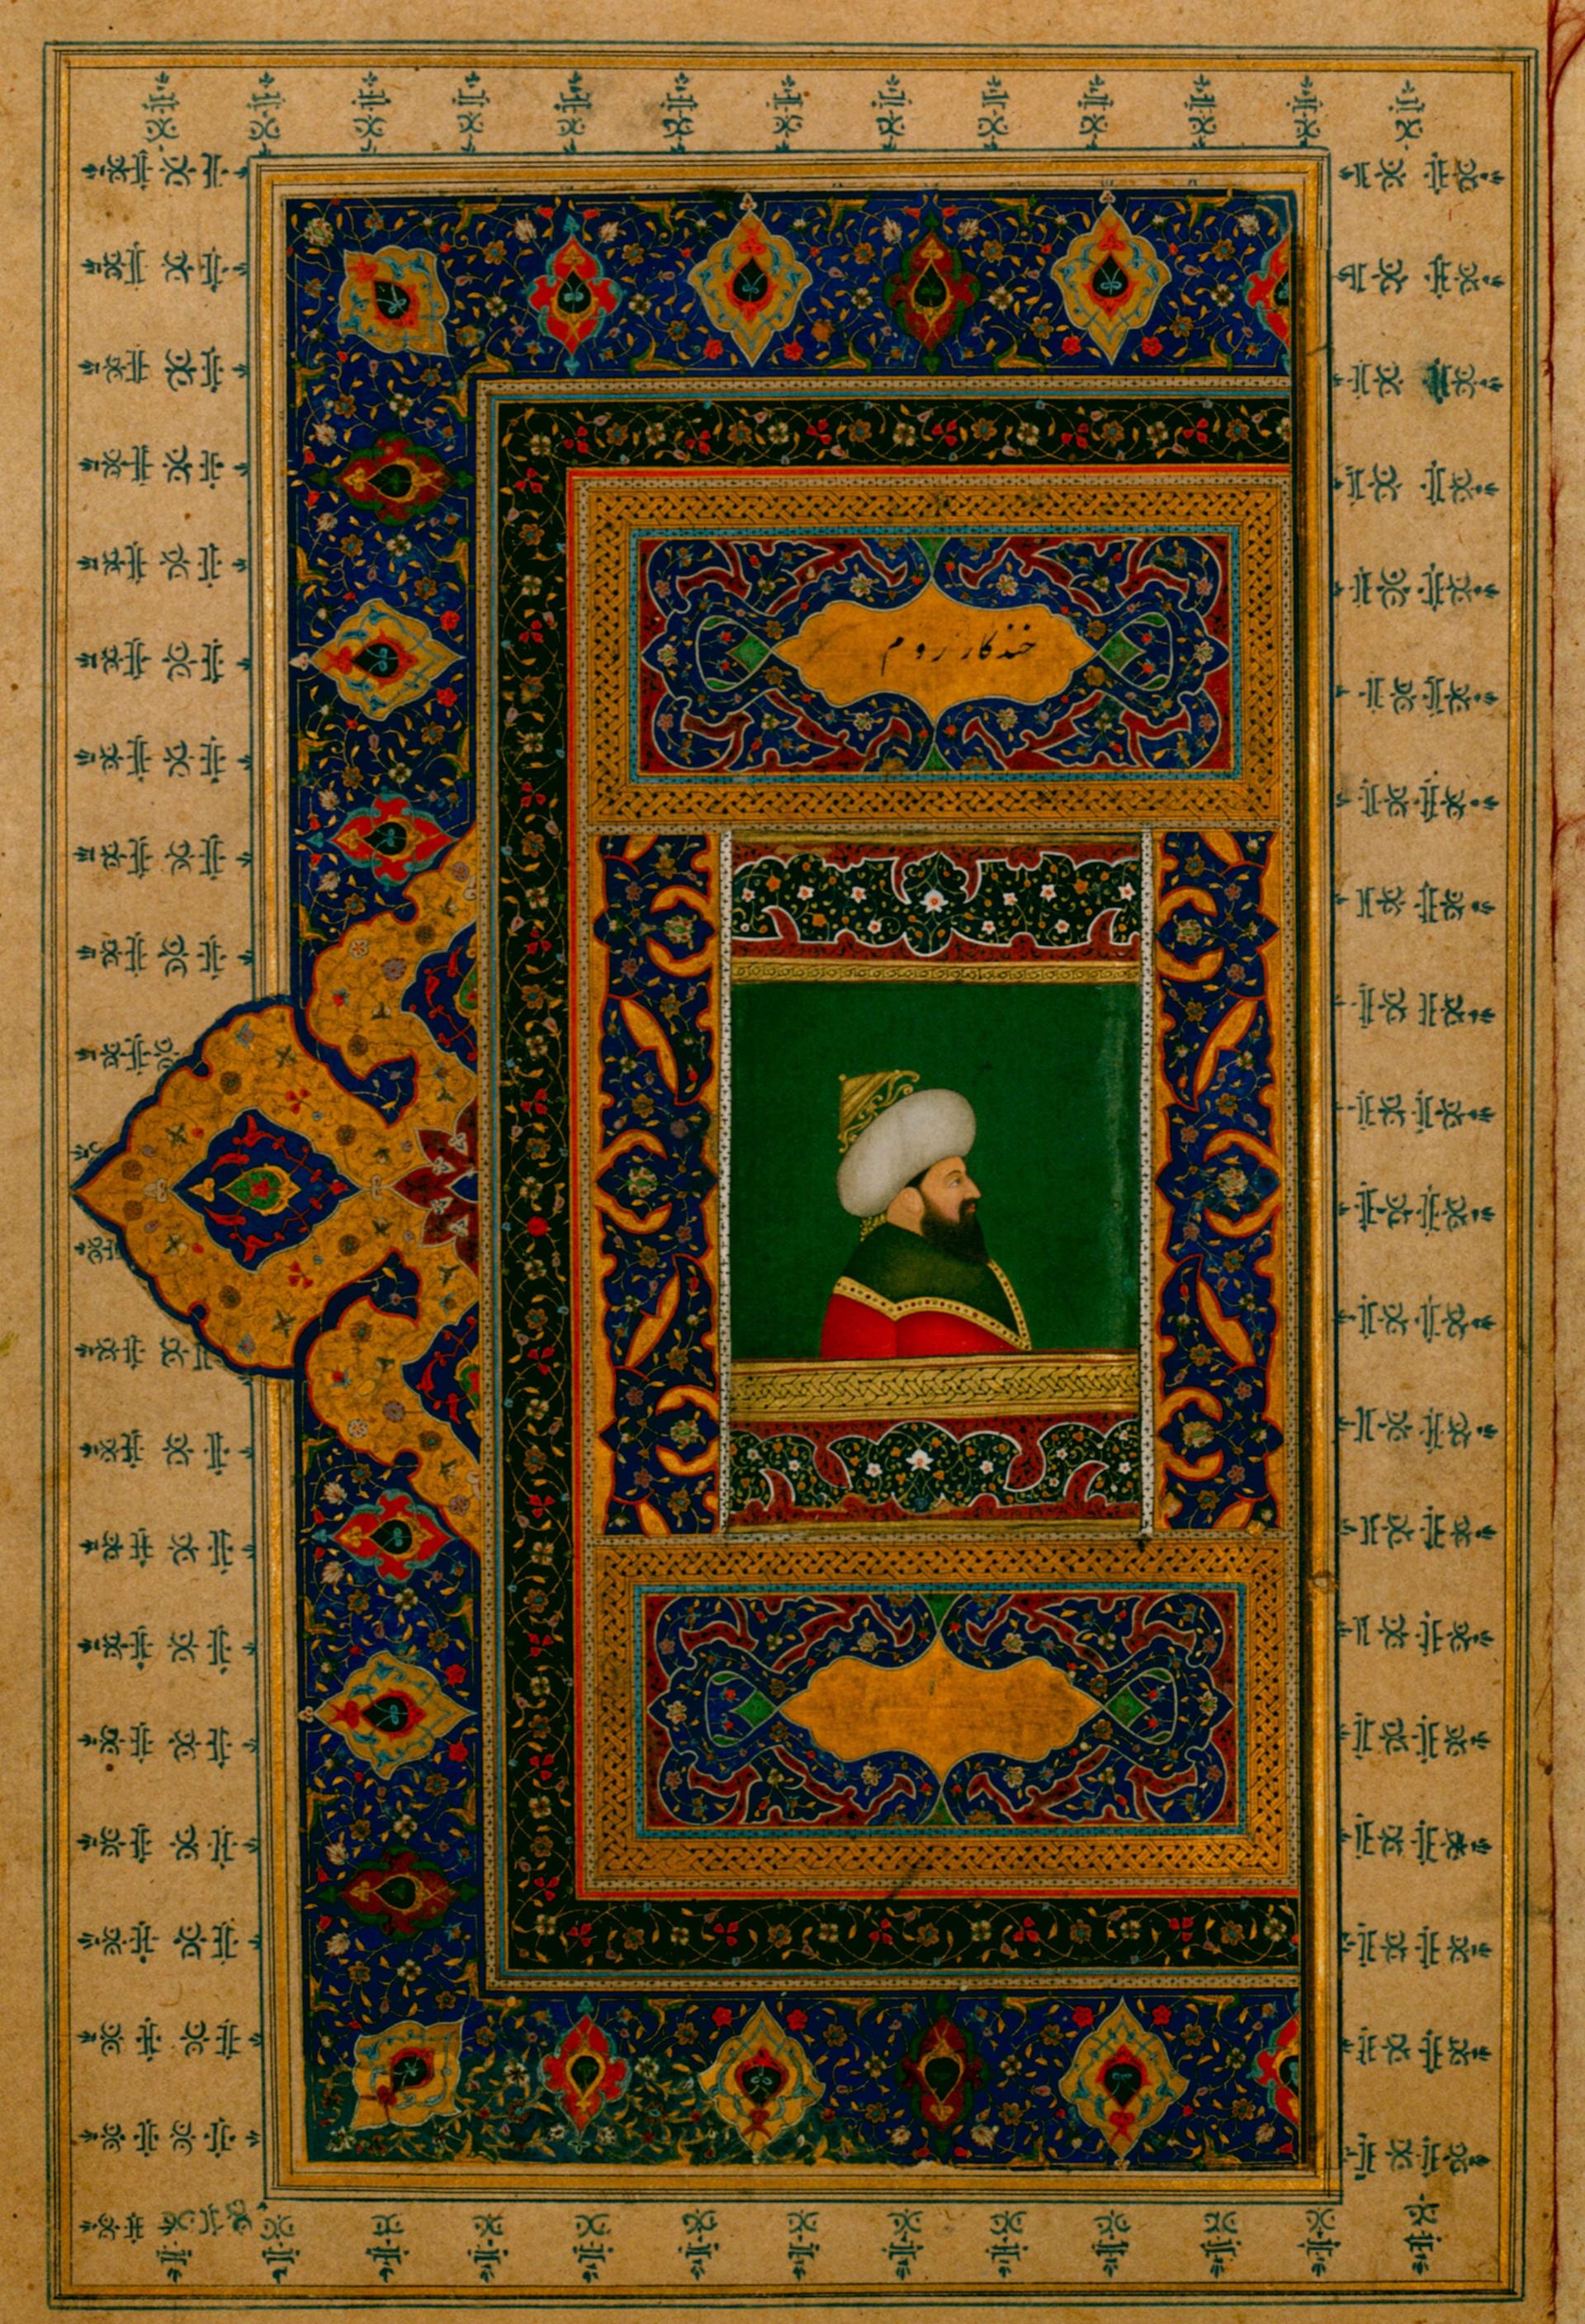 خندکار روم